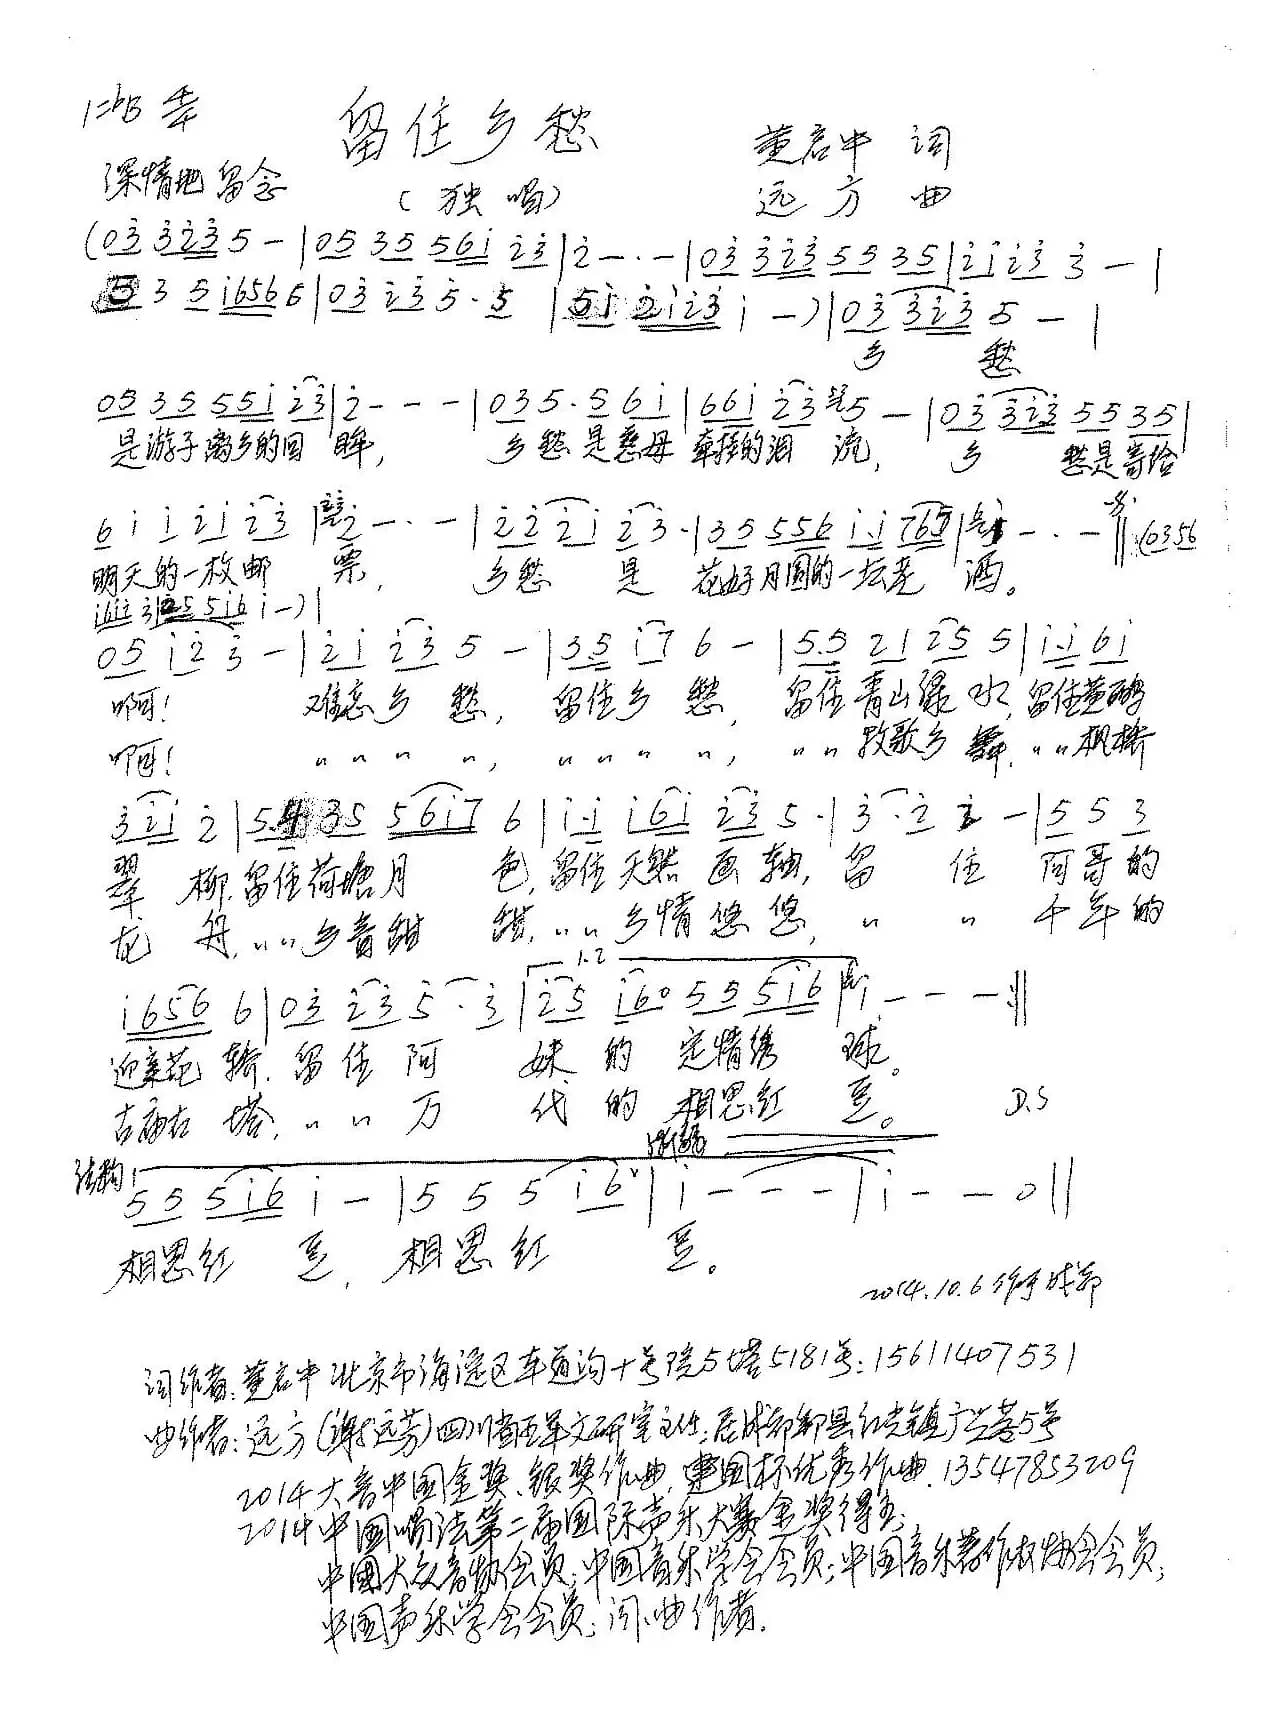 1=♭B 4/4 留住乡愁
董启中 词
深情地 留念 (独唱) 远方 曲
(03 323 5 - | 05 35 561 23 | 2 - · - | 03 323 55 35 | 21 23 3 - |
5 3 5 1656 6 | 03 23 5 · 5 | 51 2123 1 - ) | 03 323 5 - |
乡 愁
05 35 551 23 | 2 - - - | 035 · 5 61 | 661 23 5 - | 03 323 55 35 |
是游子离乡的回 眸, 乡愁是慈母 牵挂的泪 流, 乡 愁是寄给
6 1 1 21 23 | 2 - · - | 22 21 23 · | 35 556 1·1 765 | - · - ‖ (6356
明天的一枚邮 票, 乡愁 是 花好月圆的一坛老 酒。
05 12 3 - | 21 23 5 - | 3·5 17 6 - | 5·5 21 25 5 | 1·1 61
啊! 难忘乡 愁, 留住乡 愁, 留住青山绿 水, 留住黄鹂
啊! 〃 〃 〃 〃, 〃 〃 〃 〃, 〃 〃 牧歌乡 〃 〃 枫桥
3 21 2 | 5·4 35 5617 6 | 1·1 161 23 5 · | 3 · 2 2 - | 5 5 3
翠 柳, 留住荷塘月 色, 留住天然 画 轴, 留 住 阿哥的
龙 舟, 〃 〃 乡音甜 甜, 〃 〃 乡情悠 悠, 〃 〃 千年的
1.2
1656 6 | 03 23 5 · 3 | 25 160 55 516 | 1 - - - :‖
迎亲花 轿, 留住 阿 妹 的 定情绣 球。
古庙古 塔, 〃 〃 万 代 的 相思红 豆。 D.S
渐慢
结构
55 516 1 - | 5 5 5 16 | 1 - - - | 1 - - 0 ‖
相思红 豆, 相思红 豆。
2014.10.6 作于成都
词作者: 董启中 北京市海淀区车道沟十号院5塔5181号: 15611407531
曲作者: 远方(谢远芳)四川省 文研室主任; 居成都郫县红光镇广兰巷5号
2014大音中国金奖、银奖作曲, 建国杯优秀作曲. 13547853209
2014中国唱法第二届国际声乐大赛金奖得主;
中国大众音协会员; 中国音乐学会会员; 中国音乐著作权协会会员;
中国声乐学会会员; 词、曲作者.